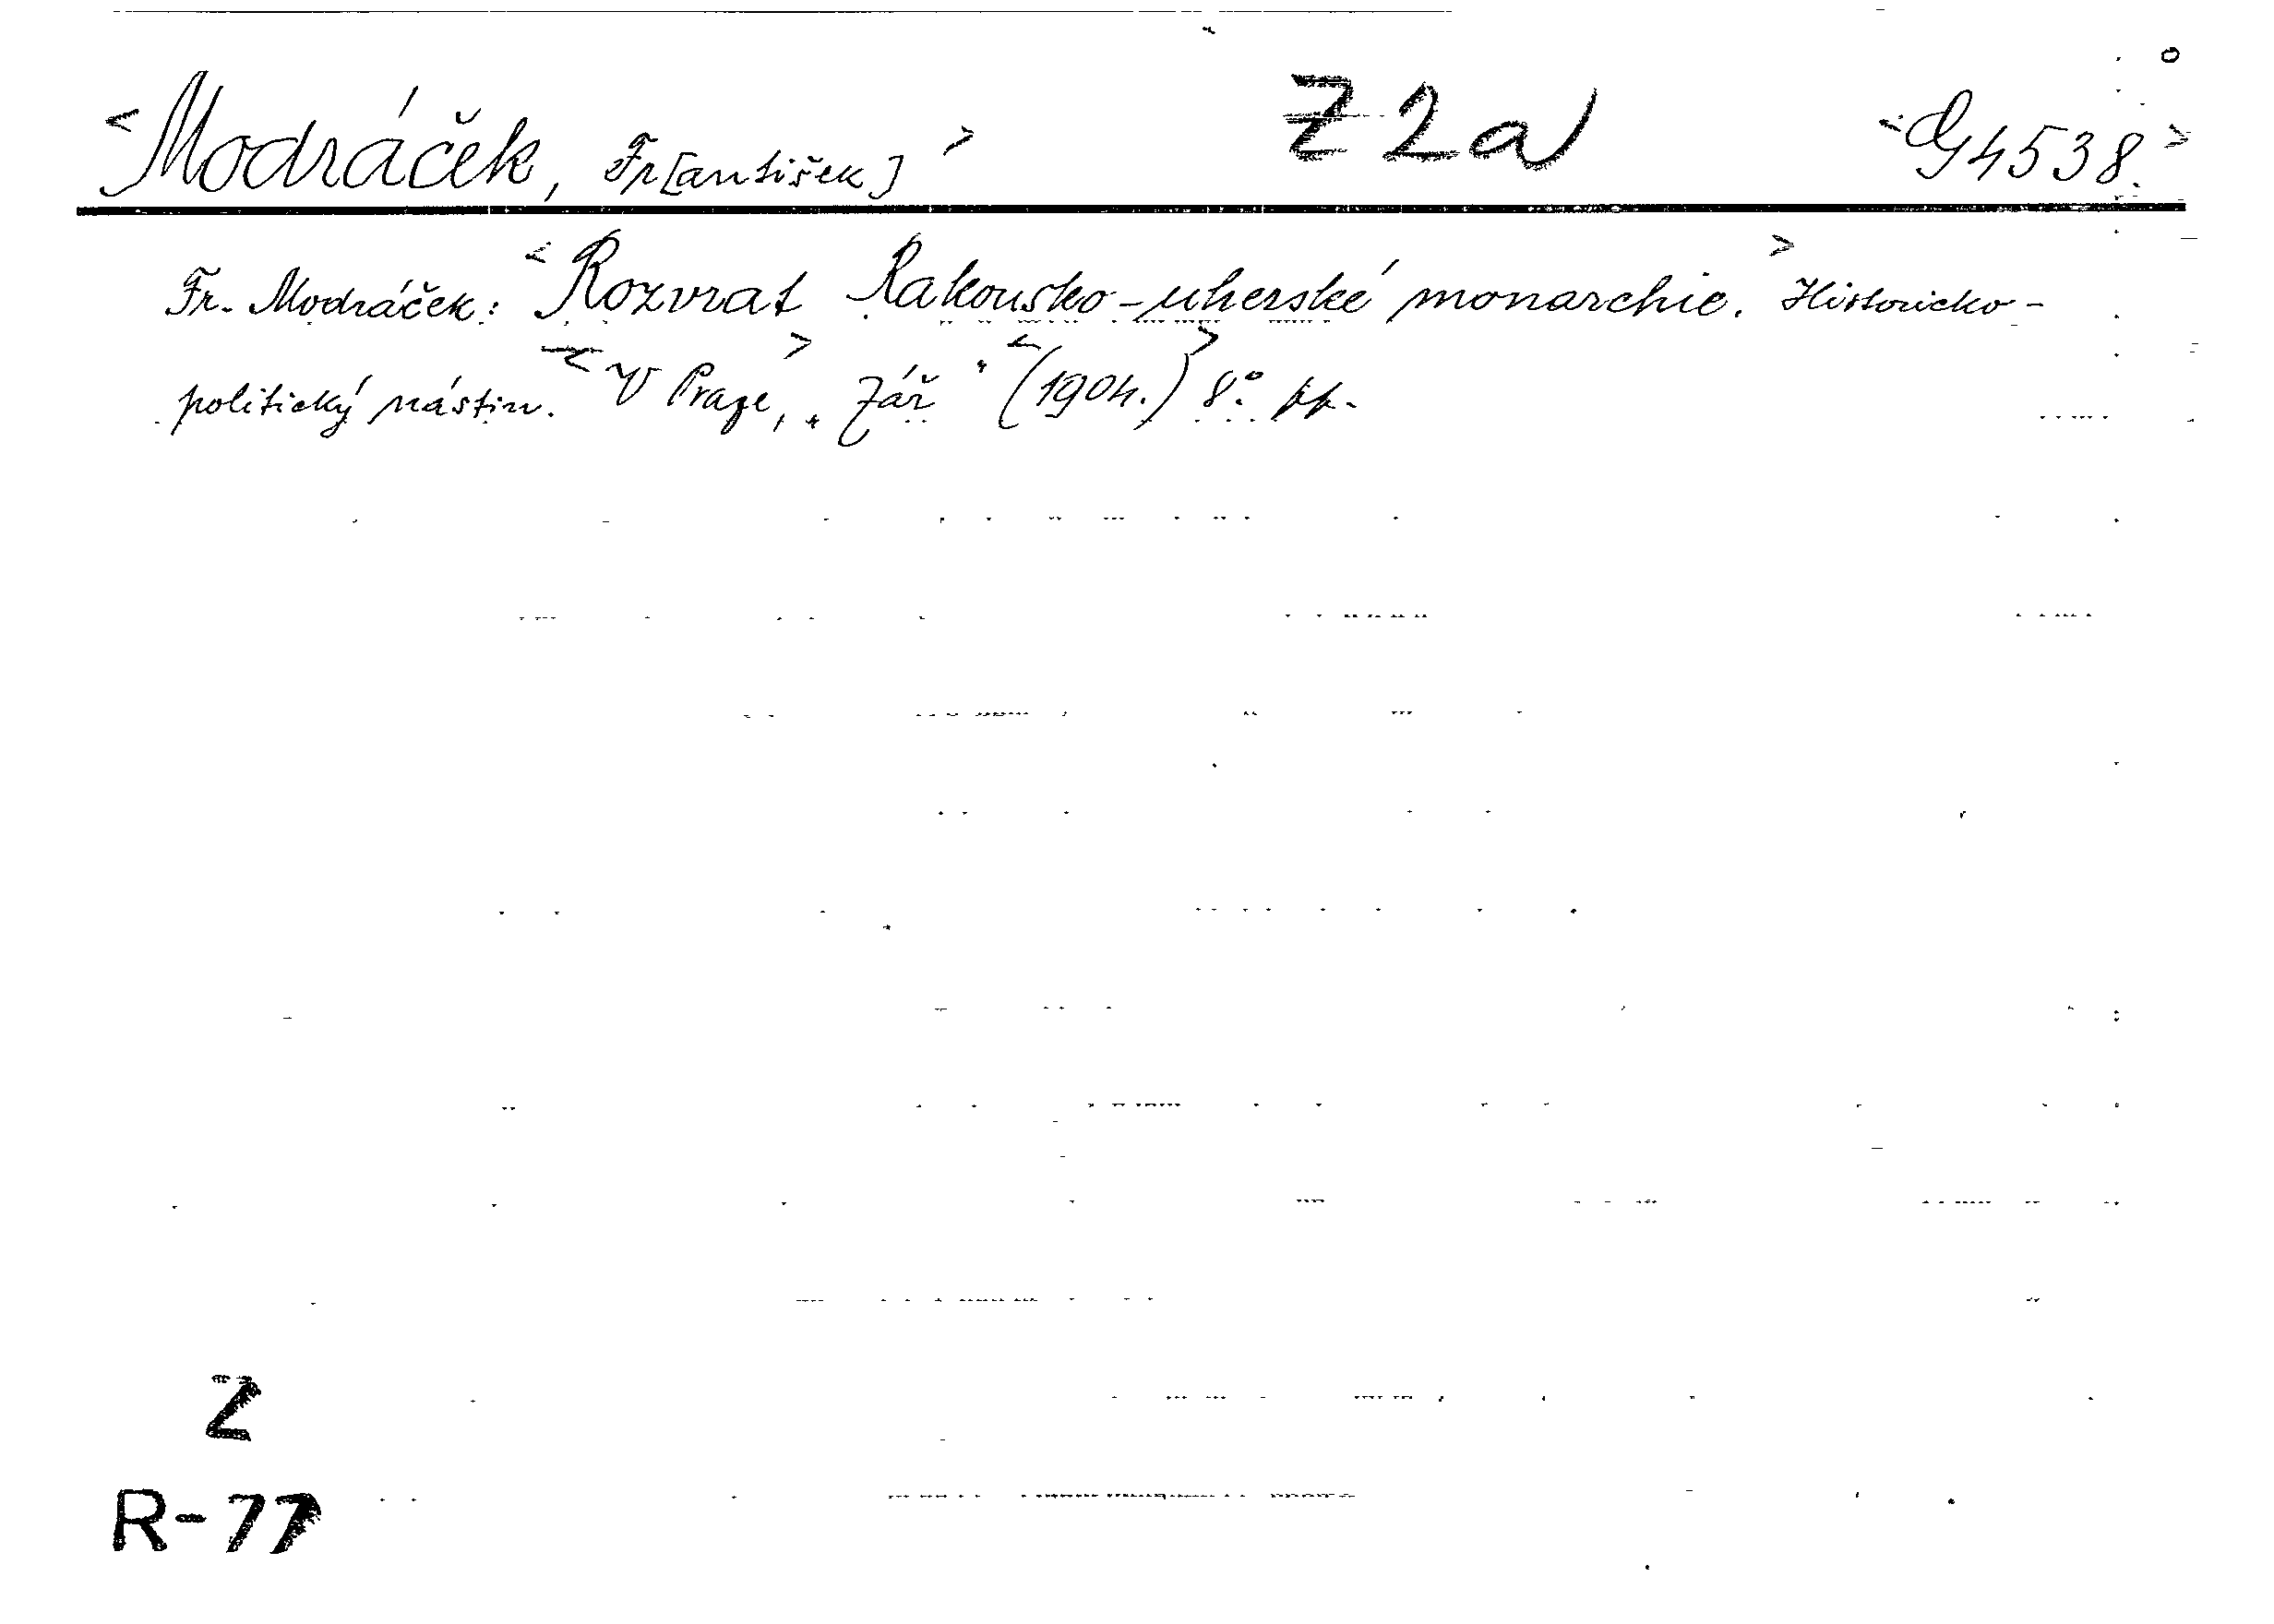 <Modráček, Fr[antišek]> Z2a <G4538.>
Fr. Modráček: <Rozvrat Rakousko-uherské monarchie.> Historicko-
politický nástin. <V Praze,> „Zář“ <(1904.)> 8° pp.
Z
R-77